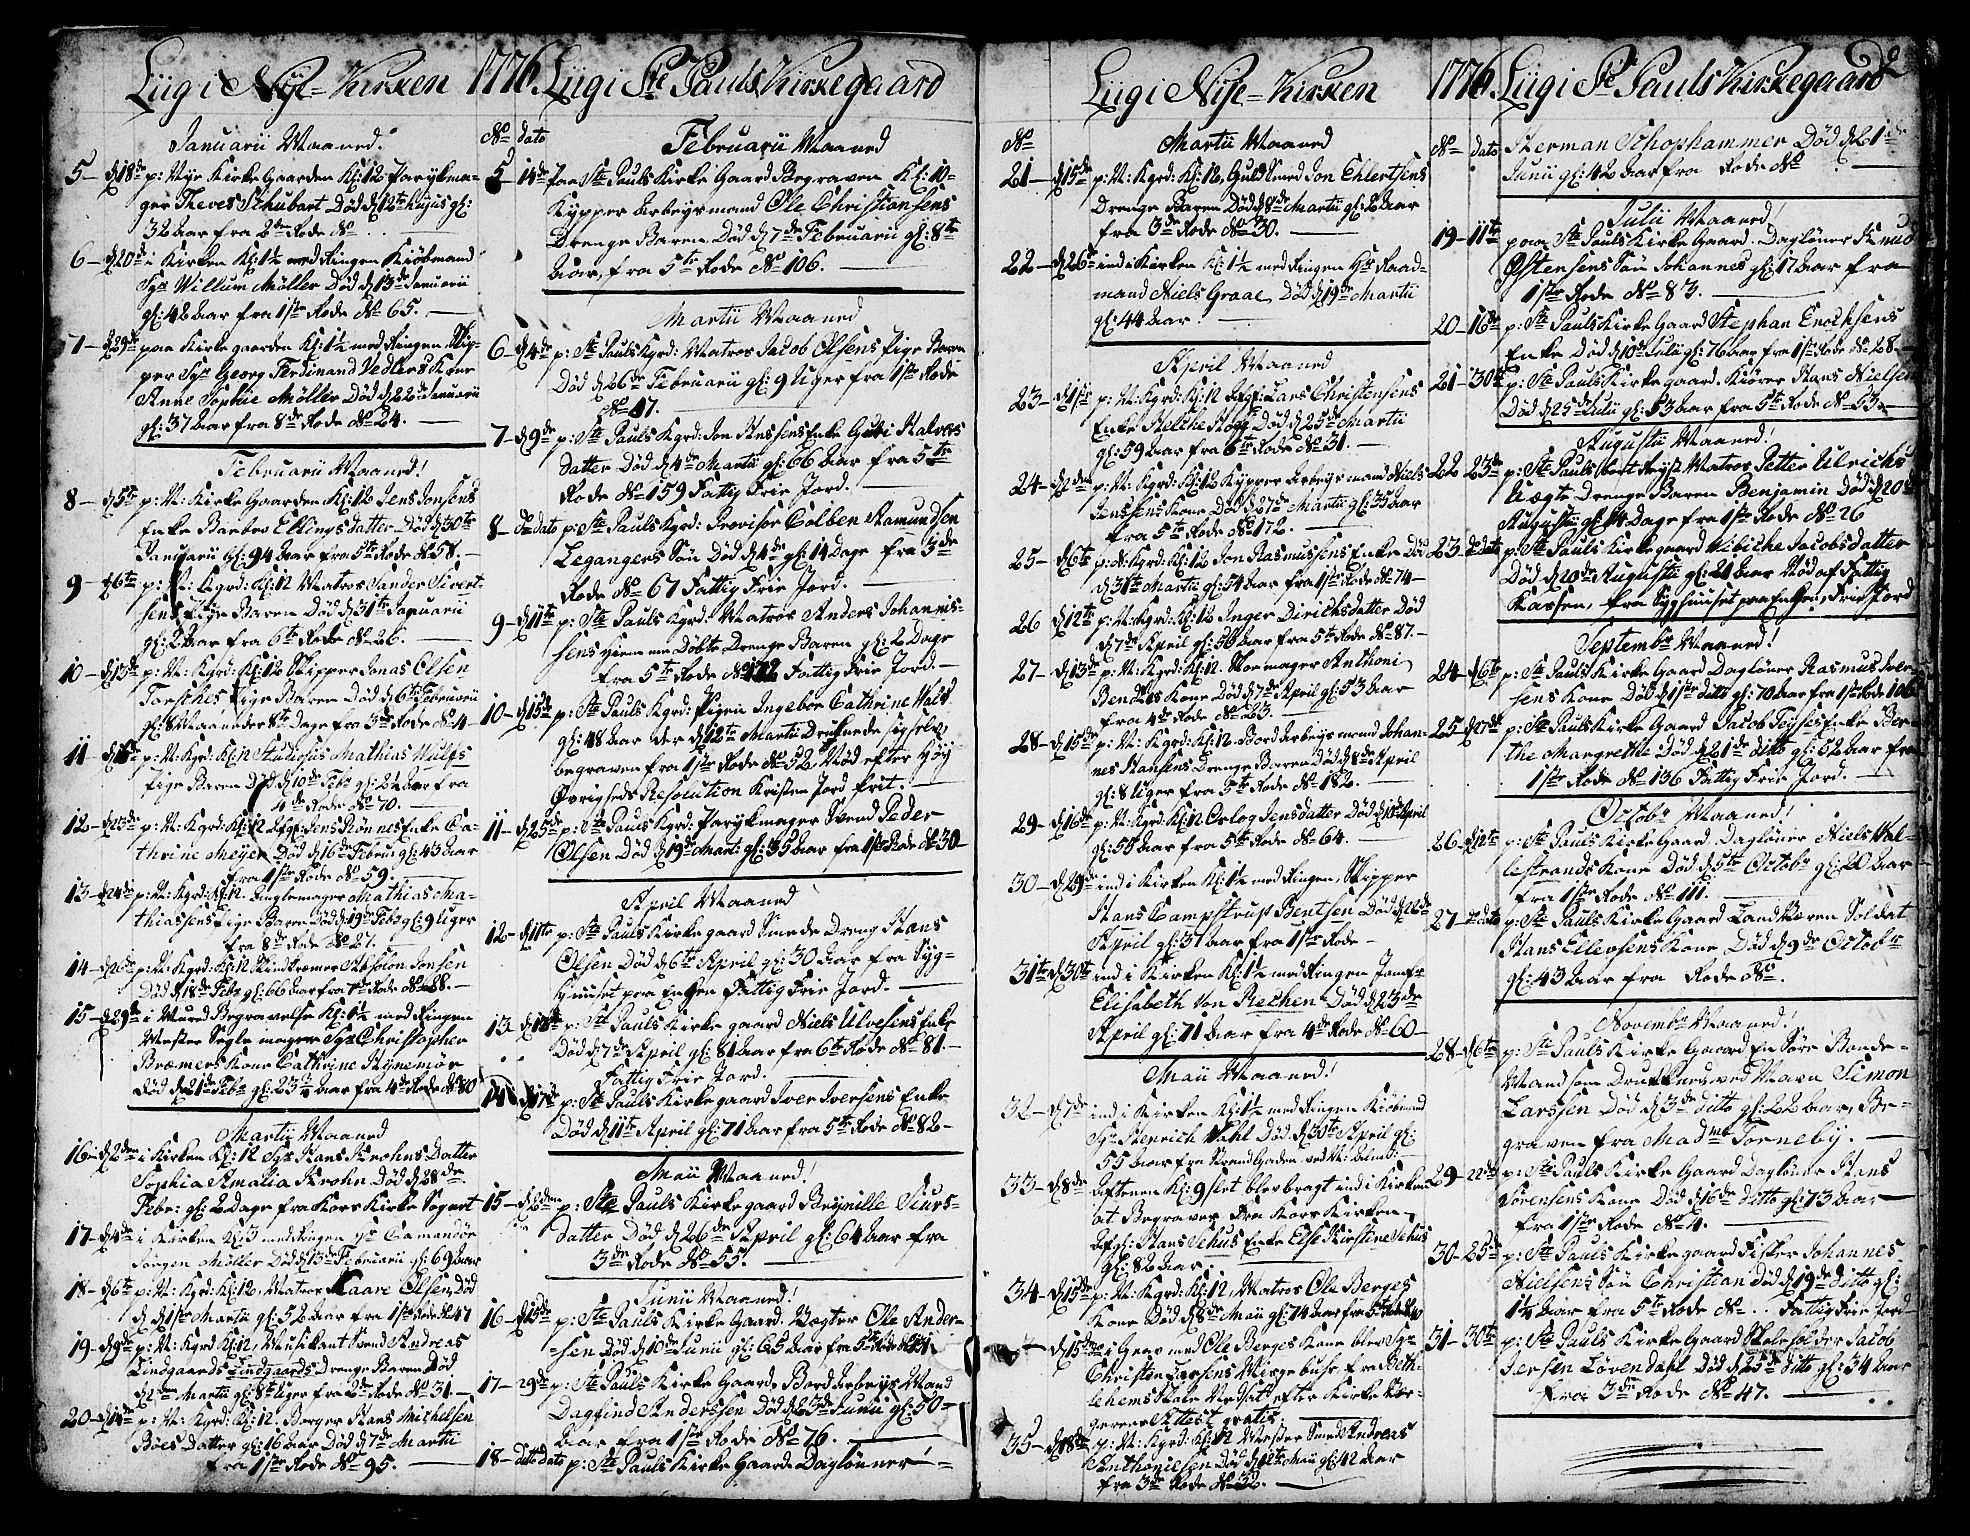 Liig i Nÿe-Kirken 1776
Januarii Maaned.
5 – d 18de p: Nye Kirke Gaarden Kl: 12 Parykma-
ger Theves Schubart Død d 12te hujus gl:
32 Aar fra 2den Rode No
6 – d 20de i Kirken Kl: 1½ med Ringen Kiøbmand
Sgr Willum Møller Død d 13de Januarii
gl: 42 Aar fra 1ste Rode No 65.
7 – d 29de paa Kirke gaarden Kl: 1½ med Ringen Skip-
per Sgr Georg Ferdinand Vedlers Kone
Anne Sophie Møller Død d 22de Januarii
gl: 37 Aar fra 8de Rode No 24.
Februarii Maaned!
8 – d 5te p: N: Kirke Gaarden Kl: 12 Jens Jonsens
Enke Barbro Ellingsdatter Død d 30te
Januarii gl: 94 Aar fra 5te Rode No 58.
9 – d 6te p: N: Kgrd: Kl: 12 Matros Sander Sivert-
sens Pige Baren Død d 31te Januarii
gl: 2 Aar fra 6te Rode No 26.
10 – d 13de p: N: Kgrd: Kl: 12 Skipper Jonas Olsen
Torschés Pige Baren Død d 6te Februarii
gl: 8 Maaneder 8te Dage fra 3de Rode No 4
11 – p: N: Kgrd: Kl: 12 Studiosus Mathias Wulffs
Pige Baren Død d 10de Febr gl: 2½ Aar fra
4de Rode No 70.
12 – d 23de p: N: Kgrd: Kl: 12 Afg: Jens Rønnes Enke Ca-
thrine Meyer Død d 16de Februs gl: 43 Aar
fra 1ste Rode No 59.
13 – d 24de p: N: Kgrd: Kl: 12 Mathias Ma-
thiassens Pige Baren Død d 19de Febr gl: 9 Uger
fra 8de Rode No 27.
14 – d 26de p: N: Kgrd: Kl: 12 Absolon Jonsen
Død d 18de Febr gl: 66 Aar fra Rode No 88.
15 – d 29de i Mured Begravelse Kl: 1½ med Ringen
Mester Segle mager Sgr Christopher
Bræmers Kone Cathrine Hynemør
Død d 21de Febr gl: 23½ Aar fra 4de Rode No 80
Martii Maaned
16 – d 2den i Kirken Kl: 12 Sgr Hans Krohns Datter
Sophia Amalia Krohn Død d 28de
Febr: gl: 2 Dage fra Kors Kirke Sognet
17 – d 4de i Kirken Kl: med Ringen
Jørgen Møller Død d 13de Februarii gl: 69 Aar
18 – d 6te p: N: Kgrd: Kl: 12, Matros Kaare Olsen, Død
d 1ste Martii gl: 52 Aar fra 1ste Rode No 47
19 – d 9de p: N: Kgrd Kl: 12, Musikant Svend Andreas
Lindgaards Lindgaards Drenge Baren Død
d 2den Martii gl: 8te Uger fra Rode No 31
20 – p: N: Kgrd: Kl: 12. Borger Hans Michelsen
Bøes Datter gl: 16 Aar Død d 7de Martii
fra 1ste Rode No 95.
Liig i Ste Pauls Kirkegaard
No dato
Februarii Maaned
5 – 14de paa Ste Pauls Kirke Gaard Begraven Kl: 10
Kypper Arbeysmand Ole Christiansens
Drenge Baren Død d 7de Februarii gl: 8te
Aar, fra 5te Rode No 106.
Martii Maaned
6 – d 4de p: Ste Pauls Kgrd: Matros Jacob Olsens Pige Baren
Død d 26de Februarii gl: 9 Uger fra 1ste Rode
No 47.
7 – d 9de p: Ste Pauls Kgrd: Jon Assens Enke Guri Halvors
datter Død d 4de Martii gl: 66 Aar fra 5te
Rode No 159 Fattig Frie Jord.
8 – do dato p: Ste Pauls Kgrd: Provisor Colben Aamundsen
Legangers Søn Død d 4de gl: 14 Dage fra 3de
Rode No 67 Fattig Frie Jord.
9 – d 11te p: Ste Pauls Kgrd: Matros Anders Johannis-
sens Hiemme Døbte Drenge Baren gl: 2 Dage
fra 5te Rode No 172 Fattig Frie Jord.
10 – d 15de p: Ste Pauls Kgrd: Pigen Ingebor Cathrine Wild
gl: 48 Aar der d 12te Martii Druknede sig selv
begraven fra 1ste Rode No 52 Mod efter Høy
Øvrigheds Resolution Kristen Jord frit.
11 – d 25de p: Ste Pauls Kgrd: Parykmager Svend Peder
Olsen Død d 19de Marti gl: 35 Aar fra 1ste Rode No 30
April Maaned
12 – d 11te p: Ste Pauls Kirke gaard Smede Dreng Hans
Olsen Død d 6te April gl: 30 Aar fra Syg-
huuset paa Engen Fattig Frie Jord.
13 – p: Ste Pauls Kirke gaard Niels Ulvesens Enke
Død d 7de April gl: 81 Aar fra 6te Rode No 81.
Fattig Frie Jord.
14 – d 17de p: Ste Pauls Kirke gaard Iver Iversens Enke
Død d 11te April gl: 71 Aar fra 5te Rode No 82
Maii Maaned!
15 – d 2den p: Ste Pauls Kirke gaard Brynille Siurs-
datter Død d 26de April gl: 64 Aar fra
3de Rode No 55.
Junii Maaned!
16 – d 15de p: Ste Pauls Kirke Gaard: Vegter Ole Ander-
sen Død d 10de Junii gl: 65 Aar fra 5te Rode
17 – 29de p: Ste Pauls Kirke Gaard, Bord Arbeyds Mand
Dagfind Anderssen Død d 23de Junii gl: 50
Aar fra 1ste Rode No 76.
18 – dito dato p: Ste Pauls Kirke Gaard Dagløner
Liig i Nÿe-Kirken 1776
No
Martii Maaned
21 – d 15de p: N: Kgrd: Kl: 12, Guld Smed Jon Ehlertsens
Drenge Baren Død d 8de Martii gl: 2 Aar
fra 3de Rode No 30.
22 – d 26de ind i Kirken Kl: 1½ med Ringen Hr Raad-
mand Niels Graae, Død d 19de Martii
gl: 44 Aar.
April Maaned
23 – d 1ste p: N: Kgrd: Kl: 12 Afg: Lars Christensens
Enke Helche Død d 25de Martii
gl: 59 Aar fra 6te Rode No 31.
24 – d 2den p: N: Kgrd: Kl: 12 Kypper Arbeysmand Niels
Jenssens Kone Død d 27de Martii gl: 35 Aar
fra 5te Rode No 172.
25 – d 6te p: N: Kgrd: Kl: 12 Jon Rasmussens Enke Død
d 31te Martii gl: 54 Aar fra 1ste Rode No 74
26 d 12te p: N: Kgrd: Kl: 12 Inger Dirichsdatter Død
d 7de April gl: 56 Aar fra 5te Rode No 87.
27 – d 13de p: N: Kgrd: Kl: 12. Skomager Anthoni
Bendixes Kone Død d 7de April gl: 53 Aar
fra 4de Rode No 23.
28 – d 15de p: N: Kgrd: Kl: 12. Bord Arbeys mand Johan-
nes Hansens Drenge Baren Død d 8de April
gl: 8 Uger fra 5te Rode No 182.
29 – d 16de p: N: Kgrd: Kl: 12 Orlog Jensdatter Død d 10de April
gl: 55 Aar fra 5te Rode No 64.
30 – d 29de ind i Kirken Kl: 1½ med Ringen, Skipper
Hans Campstrup Bentsen Død d 22de
April gl: 37 Aar fra 1ste Rode
31te d 30te ind i Kirken Kl: 1½ med Ringen Jomfr
Elisabeth Von Rechen Død d 23de
April gl: 71 Aar fra 4de Rode No 60
Maii Maaned!
32 – d 7de ind i Kirken Kl: 1½ med Ringen Kiøbmand
Sgr Henrich Wahl Død d 30te April gl:
55 Aar fra Strand Gaden ved
33 – d 8de Aftenen Kl: 9 slet blev bragt ind i Kirken
at Begraves fra Kors Kirken
Afg: Hans Sehus Enke Else Kirstine Sehus
gl: 82 Aar.
34 – d 15de p: N: Kgrd: Kl: 12, Matros Ole Berges
Kone Død d 8de Maii gl: 74 Aar fra 5te Rode
d 15de i Grav med Ole Berges Kone blev Sgr
Christen Larsens Mirge buhr fra Beth-
lehems Stæte efter Kirke Vær-
gerens Attest gratis
35 – d 18de p: N: Kgrd: Kl: 12 Mester Smed Andreas
Anthoniesen Død d 12te Maii gl: 42 Aar
fra 3de Rode No 32.
Liig i Ste Pauls Kirkegaard 2
No dato Herman Schophammer Død d 21de
Junii gl: 42 Aar fra Rode No
Julii Maaned!
19 – 11te paa Ste Pauls Kirke Gaard. Dagløner Knud
Østensens Søn Johannes gl: 17 Aar fra
1ste Rode No 83.
20 – 16de p: Ste Pauls Kirke Gaard Stephan Enochsens
Enke Død d 10de Julii gl: 76 Aar fra 1ste Rode No 28
21 – 30te p: Ste Pauls Kirke gaard. Kiører Hans Nielsen
Død d 25de Julii gl: 53 Aar fra 5te Rode No 53.
Augustii Maaned!
22 23de p: Ste Pauls bort Reyst Matros Petter Ulrichs
Uægte Drenge Baren Benjamin Død d 20de
Augustii gl: 14 Dage fra 1ste Rode No 26
23 – do dato p: Ste Pauls Kirke gaard Wibiche Jacobsdatter
Død d 20de Augustii gl: 21 Aar Nød af Fattig
Kassen, fra Syghuuset paa Engen, Frie Jord
Septembr Maaned!
24 – d 6te p: Ste Pauls Kirke Gaard Dagløner Rasmus Iver-
sens Kone Død d 1ste ditto gl: 70 Aar fra 1ste Rode 106
25 d 27de p: Ste Pauls Kirke Gaard Jacob Enke Ber-
the Margrethe Død d 21de ditto gl: 52 Aar fra
1ste Rode No 136 Fattig Frie Jord.
Octobr Maaned!
26 – d 12te p: Ste Pauls Kirke Gaard, Dagløner Niels Val-
lestrands Kone Død d 5te Octobr gl: 20 Aar
fra 1ste Rode No 111.
27 – do dato p: Ste Pauls Kirke Gaard Land Væren Soldat
Hans Ellevsens Kone Død d 9de Octobr
gl: 43 Aar fra Rode No
Novembr Maaned!
28 – d 6te p: Ste Pauls Kirke Gaard En Søre Bonde-
Mand som Druknede ved Navn Simon
Larssen Død d 3de ditto gl: 22 Aar, Be-
graven fra Madme Torneby.
29 – 22de p: Ste Pauls Kirke Gaard Dagløner Hans
Sørensens Kone Død d 16de ditto gl: 73 Aar
fra 1ste Rode No 4.
30 – 25de p: Ste Pauls Kirke gaard Fisker Johannes
Nielsens Søn Christian Død d 19de ditto gl:
1¼ Aar fra 5te Rode No .. Fattig Frie Jord
31 – 30te p: Ste Pauls Kirke Gaard Skoleholder Jacob
Jersen Løvendahl Død d 25de ditto gl: 34 Aar
fra 3de Rode No 47.